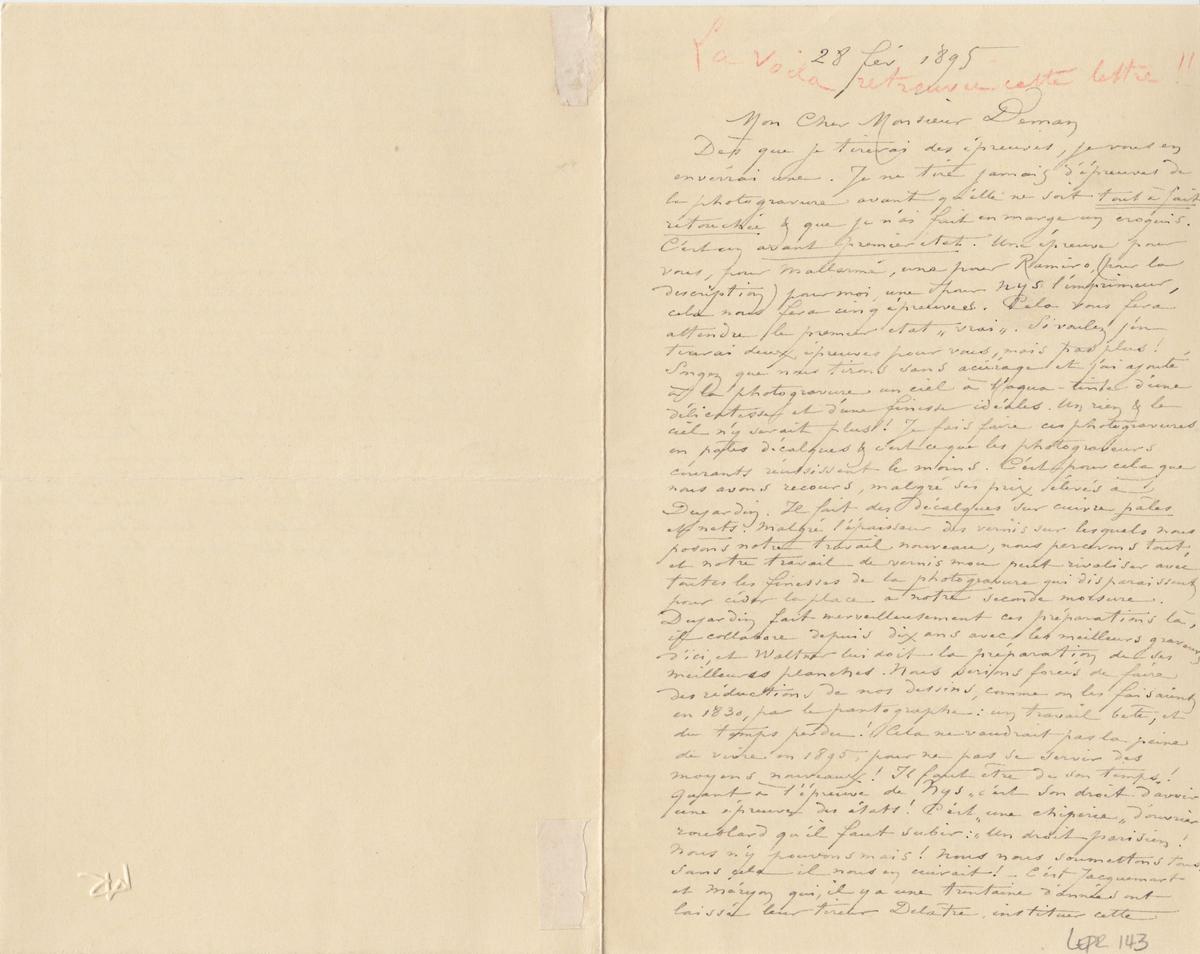 28 fév 1895
La voila retrouvée cette lettre !!
Mon Cher Monsieur Deman
Dès que je tirerai des épreuves, je vous en
enverrai une. Je ne tire jamais d'épreuves de
la photogravure avant qu'elle ne soit tout à fait
retouchée & que je n'ai fait en marge un croquis.
C'est un avant premier état. Une épreuve pour
vous, pour Mallarmé, une pour Ramiro, (pour la
description) pour moi, une pour Nys l'imprimeur,
cela nous fera cinq épreuves. Cela vous fera
attendre le premier état „vrai". Si voulez j'en
tirerai deux épreuves pour vous, mais pas plus!
Songez que nous tirons sans aciérage et j'ai ajouté
à la photogravure un ciel à l'aqua-tinte d'une
délicatesse et d'une finesse idéales. Un rien & le
ciel n'y serait plus! Je fais faire ces photogravures
en pâles décalques & c'est ce que les photograveurs
courants réussissent le moins. C'est pour cela que
nous avons recours, malgré ses prix élevés à
Dujardin. Il fait des décalques sur cuivre pâles
et nets. Malgré l'épaisseur des vernis sur lesquels nous
posons notre travail nouveau, nous percevons tout,
et notre travail de vernis mou peut rivaliser avec
toutes les finesses de la photogravure qui disparaissent
pour céder la place à notre seconde morsure.
Dujardin fait merveilleusement ces préparations là,
il collabore depuis dix ans avec les meilleurs graveurs
d'ici, et Waltner lui doit la préparation de ses
meilleures planches. Nous serions forcés de faire
des réductions de nos dessins, comme on les faisaient
en 1830, par le pantographe: un travail bête, et
du temps perdu! Cela ne vaudrait pas la peine
de vivre en 1895, pour ne pas se servir des
moyens nouveaux! Il faut être de son temps!
Quant à l'épreuve de Nys, c'est son droit d'avoir
une épreuve des états! C'est „une chiperie" d'ouvrier
roublard qu'il faut subir: „Un droit parisien!
Nous n'y pouvons mais! Nous nous soumettons tous
sans cela il nous en cuirait! - C'est Jacquemart
et Méryon qui, il y a une trentaine d'années ont
laissé leur tireur Delâtre, instituer cette
LEPR 143